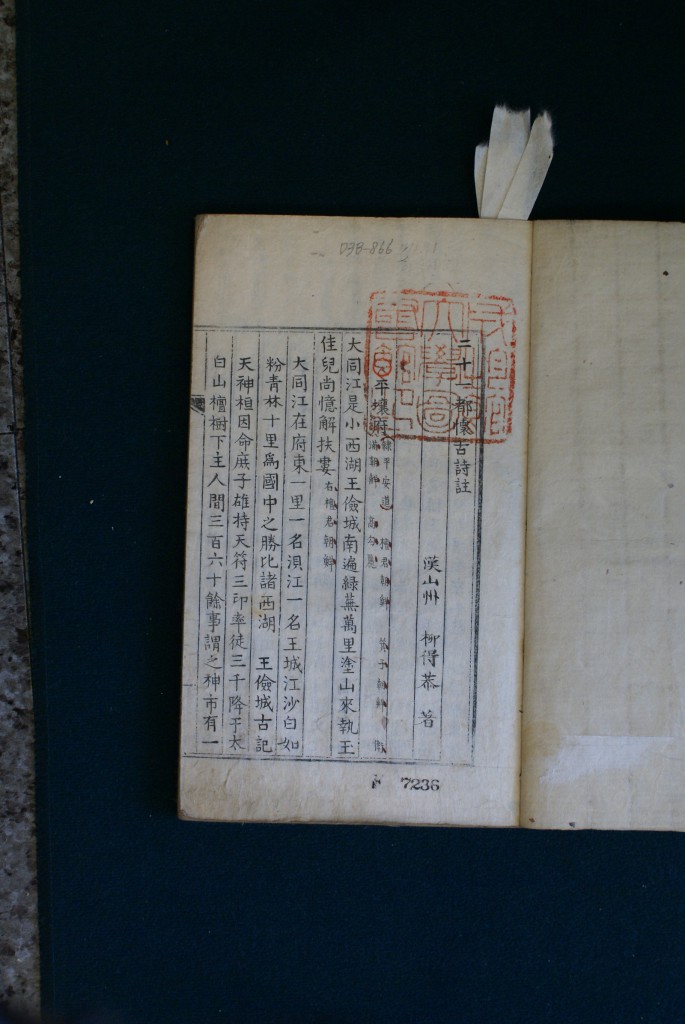 D3B-866
二十一都懷古詩註
漢山州 柳得恭 著
平壤府 隷平安道 檀君朝鮮 箕子朝鮮 衛
滿朝鮮 高句麗
大同江是小西湖王儉城南遍綠蕪萬里塗山來執玉
佳兒尚憶解扶婁 右檀君朝鮮
大同江在府東一里一名浿江一名王城江沙白如
粉青林十里爲國中之勝比諸西湖 王儉城古記
天神桓因命庶子雄持天符三印率徒三千降于太
白山檀樹下主人間三百六十餘事謂之神市有一
7236